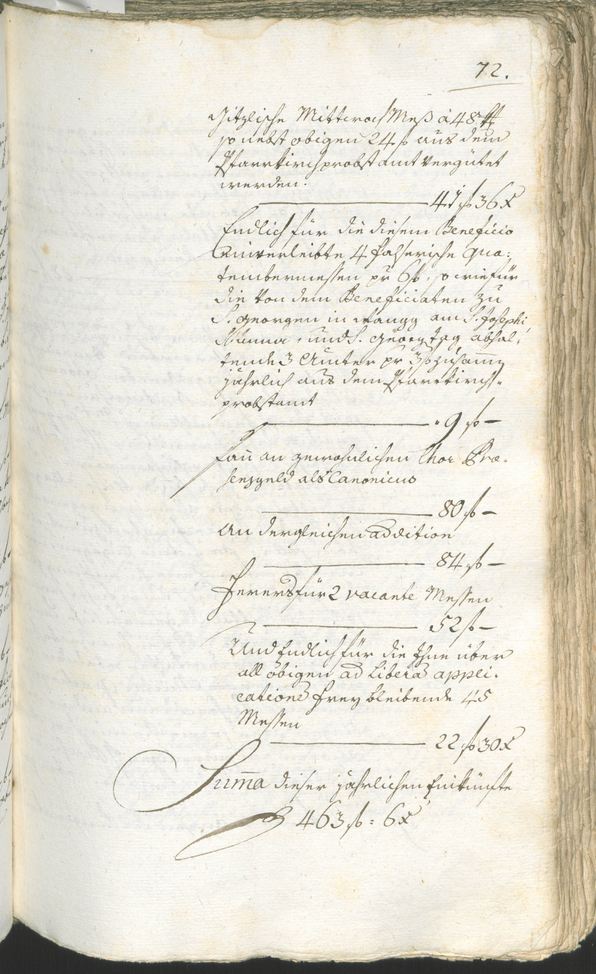 72.
Mittwoch Meß à 48 x
so nebst obigen 24 f aus dem
Pfarrkirchprobstamt vergütet
werden.
41 f 36 x
Endlich für die diesem Beneficio
Einverleibte 4 Qua:
tembermessen pr 6 f, so wie für
die von dem Beneficiaten zu
S. Georgen in am S. Josephi
Anna, und S. Georg tag abhal:
tende 3 Ämter pr 3 f zusamm
jährlich aus dem Pfarrkirch-
probstamt
9 f —
an gewohnlichen Chor Præ-
senzgeld als Canonicus
80 f —
An dergleichen addition
84 f —
für 2 vacante Messen
52 f —
Und Endlich für die Ihme über
all obigen ad libera appli-
catione frey bleibende 45
Messen
22 f 30 x
Summa dieser jährlichen Einkünfte
463 f : 6 x